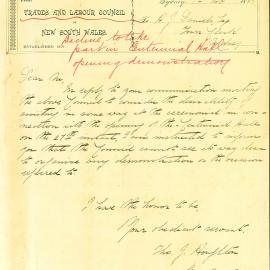 TRADES AND LABOUR COUNCIL
OF
NEW SOUTH WALES.
Sydney,
H. J. Daniels Esq
Town Clerk
Decline to take
part in Centennial Hall
opening demonstration
Dear Sir,
In reply to your communication inviting
the above Council to consider the desirability of
assisting in some way at the ceremonial in con-
nection with the opening of the Centennial Hall
on the 27th instant, I am instructed to inform
you that the Council cannot see its way clear
to organise any demonstration on the occasion
referred to.
I have the honor to be
Your obedient servant,
Thos. J. Houghton